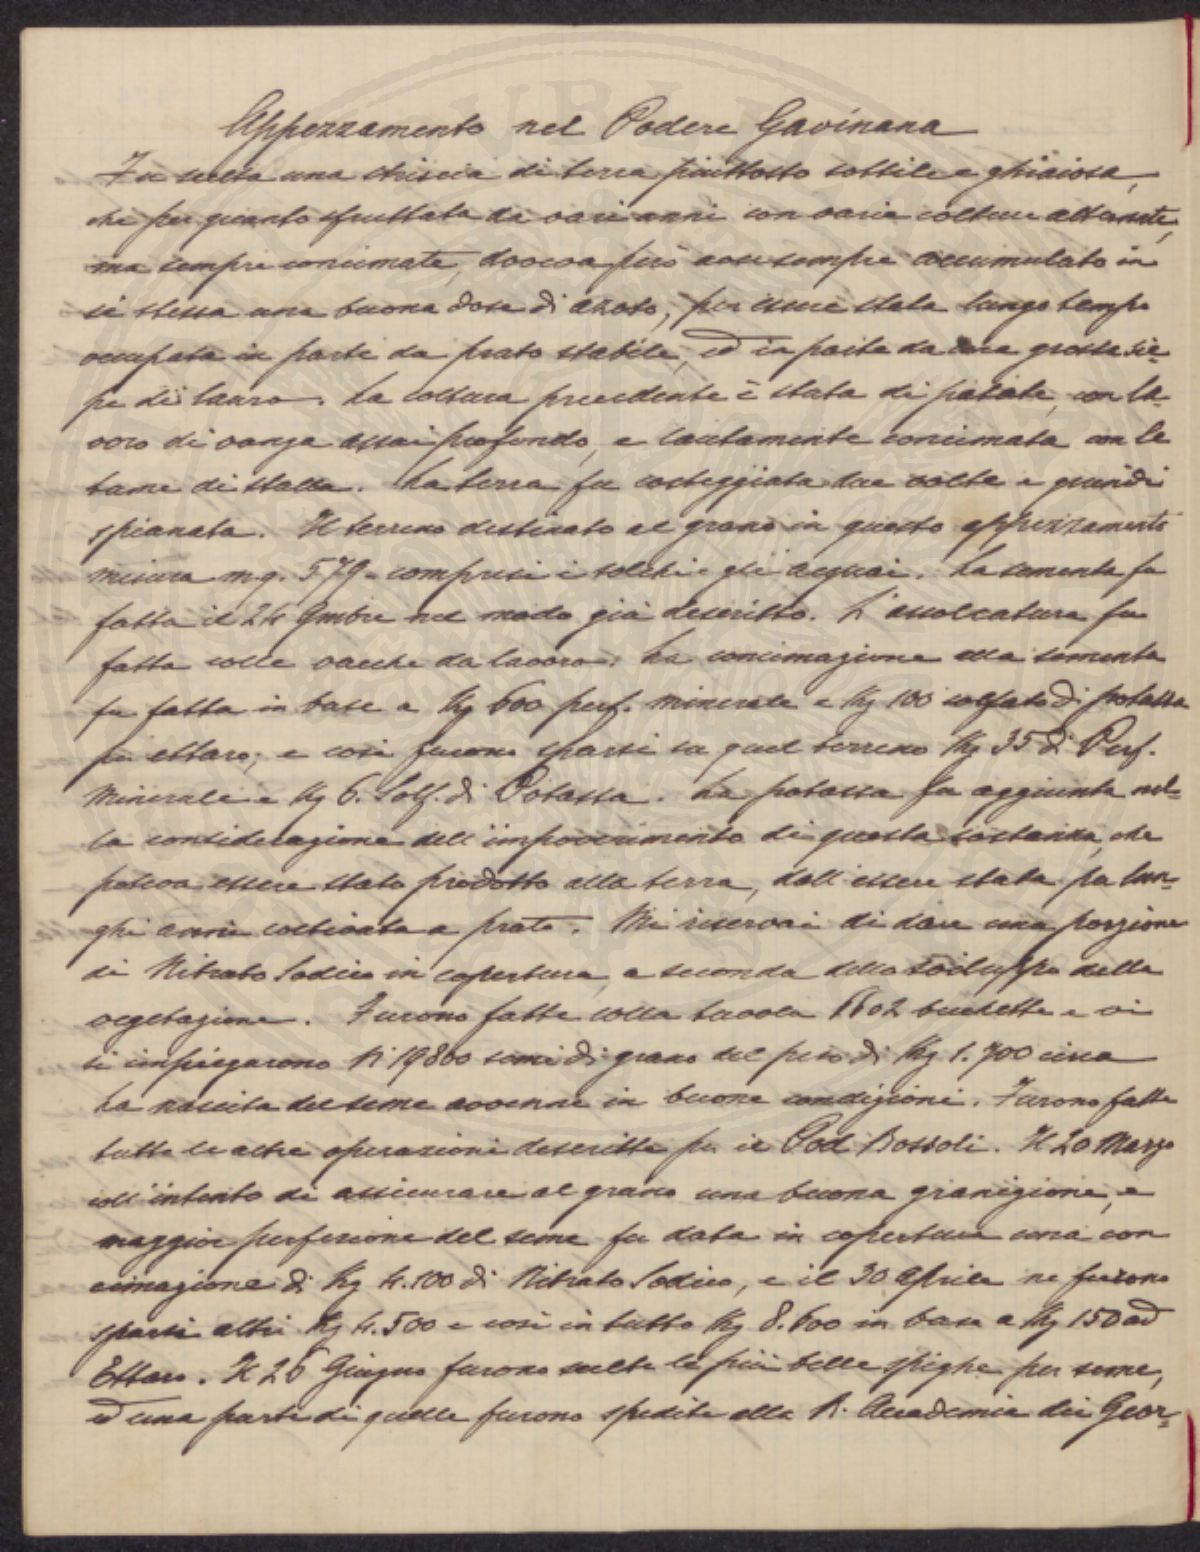 Appezzamento nel Podere Gavinana
Fu scelta una striscia di terra piuttosto sottile e ghiaiosa,
che per quanto sfruttata da vari anni con varie colture alternate,
ma sempre concimate, doveva però aver sempre accumulato in
se stessa una buona dose di azoto, per essere stata lungo tempo
occupata in parte da prato stabile, ed in parte da una grossa sie-
pe di lauro. La coltura precedente è stata di patate, con la-
voro di vanga assai profondo, e lautamente concimata con le
tame di stalla. La terra fu costeggiata due volte e quindi
spianata. Il terreno destinato al grano in questo appezzamento
misura mq. 579 = compresi i solchi e gli acquai. La sementa fu
fatta il 24 9mbre nel modo già descritto. L'assolcatura fu
fatta colle vacche da lavoro. La concimazione alla sementa
fu fatta in base a Kg 600 perf. minerale e Kg 100 solfato di potassa
per ettaro; e così furono sparsi su quel terreno Kg 35 di Perf.
Minerale e Kg 6. Solf. di Potassa. La potassa fu aggiunta nel-
la considerazione dell'impoverimento di questa sostanza, che
poteva essere stato prodotto alla terra, dall'essere stata per lun-
ghi anni coltivata a prato. Mi riservai di dare una porzione
di Nitrato Sodico in copertura, a seconda dello sviluppo della
vegetazione. Furono fatte colla tavola 6602 buchette e vi
si impiegarono N 19800 semi di grano del peso di Kg 1.700 circa
La nascita del seme avvenne in buone condizioni. Furono fatte
tutte le altre operazioni descritte per il Pod. Bossoli. Il 20 Marzo
coll'intento di assicurare al grano una buona granigione, e
maggior perfezione del seme fu data in copertura una con
cimazione di Kg 4.100 di Nitrato Sodico, e il 30 Aprile ne furono
sparsi altri Kg 4.500 e così in tutto Kg 8.600 in base a Kg 150 ad
Ettaro. Il 26 Giugno furono scelte le più belle spighe per seme,
ed una parte di quelle furono spedite alla R. Accademia dei Geor-